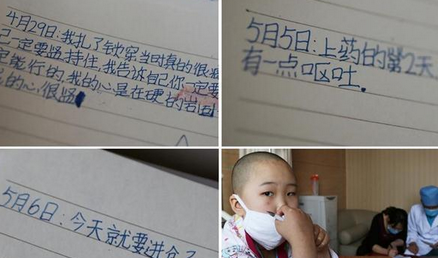 4月29日:我扎了钦穿当时真的很
己一定要坚持住,我告诉自己你一定要
定能行的,我的心是在硬的岩固
的心,很坚
5月5日:上药的第2天
有一点呕吐.
5月6日:今天就要进仓了